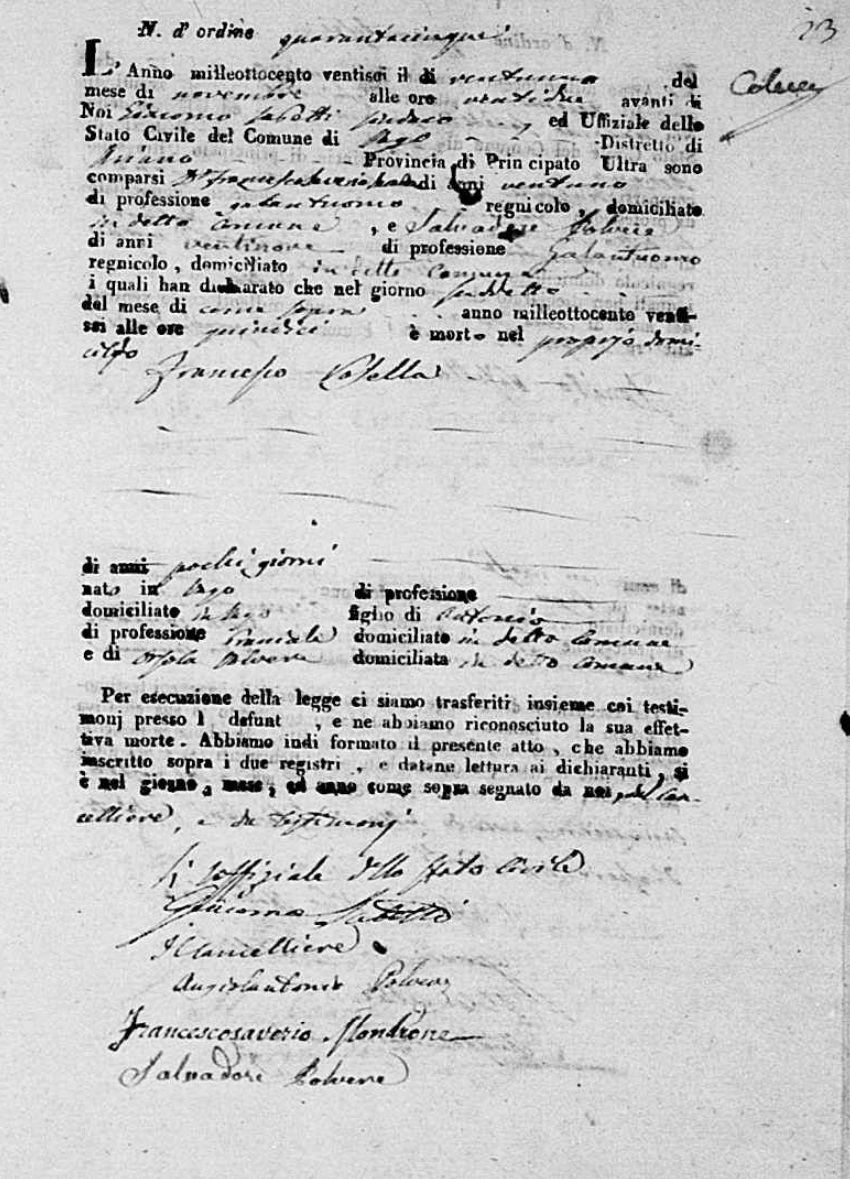 23
N. d' ordine quarantacinque
L' Anno milleottocento ventisei il di ventuno del
mese di novembre alle ore ventidue avanti di
Noi Giacomo Sabatti Sindaco ed Uffiziale dello
Stato Civile del Comune di Pago Distretto di
Ariano Provincia di Principato Ultra sono
comparsi D. Francescosaverio di anni ventuno
di professione galantuomo regnicolo, domiciliato
in detto Comune, e Salvadore Polvere
di anni ventinove di professione Galantuomo
regnicolo, domiciliato in detto Comune
i quali han dichiarato che nel giorno suddetto
del mese di come sopra anno milleottocento venti-
sei alle ore quindici è morto nel proprio domi-
cilio
Francesco
di anni pochi giorni
nato in Pago di professione
domiciliato in Pago figlio di Antonio
di professione domiciliato in detto Comune
e di Orsola Polvere domiciliata in detto Comune
Per esecuzione della legge ci siamo trasferiti insieme coi testi-
monj presso l defunt , e ne abbiamo riconosciuto la sua effet-
tiva morte. Abbiamo indi formato il presente atto, che abbiamo
inscritto sopra i due registri, e datane lettura ai dichiaranti, si
è nel giorno, mese, ed anno come sopra segnato da noi, dal can-
celliere, e da testimonj
L'uffiziale dello stato civile
Giacomo
Il Cancelliere
Angiolantonio Polvere
Francescosaverio Mondrone
Salvadore Polvere